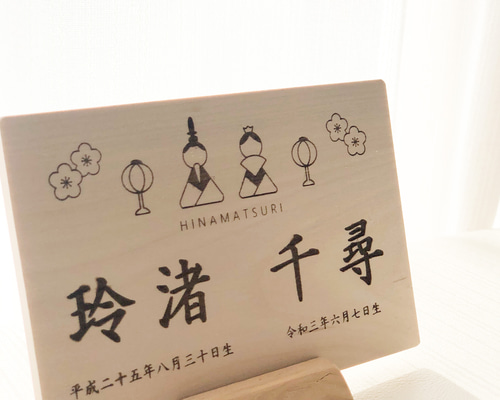 HINAMATSURI
玲渚
平成二十五年八月三十日生
千尋
令和三年六月七日生